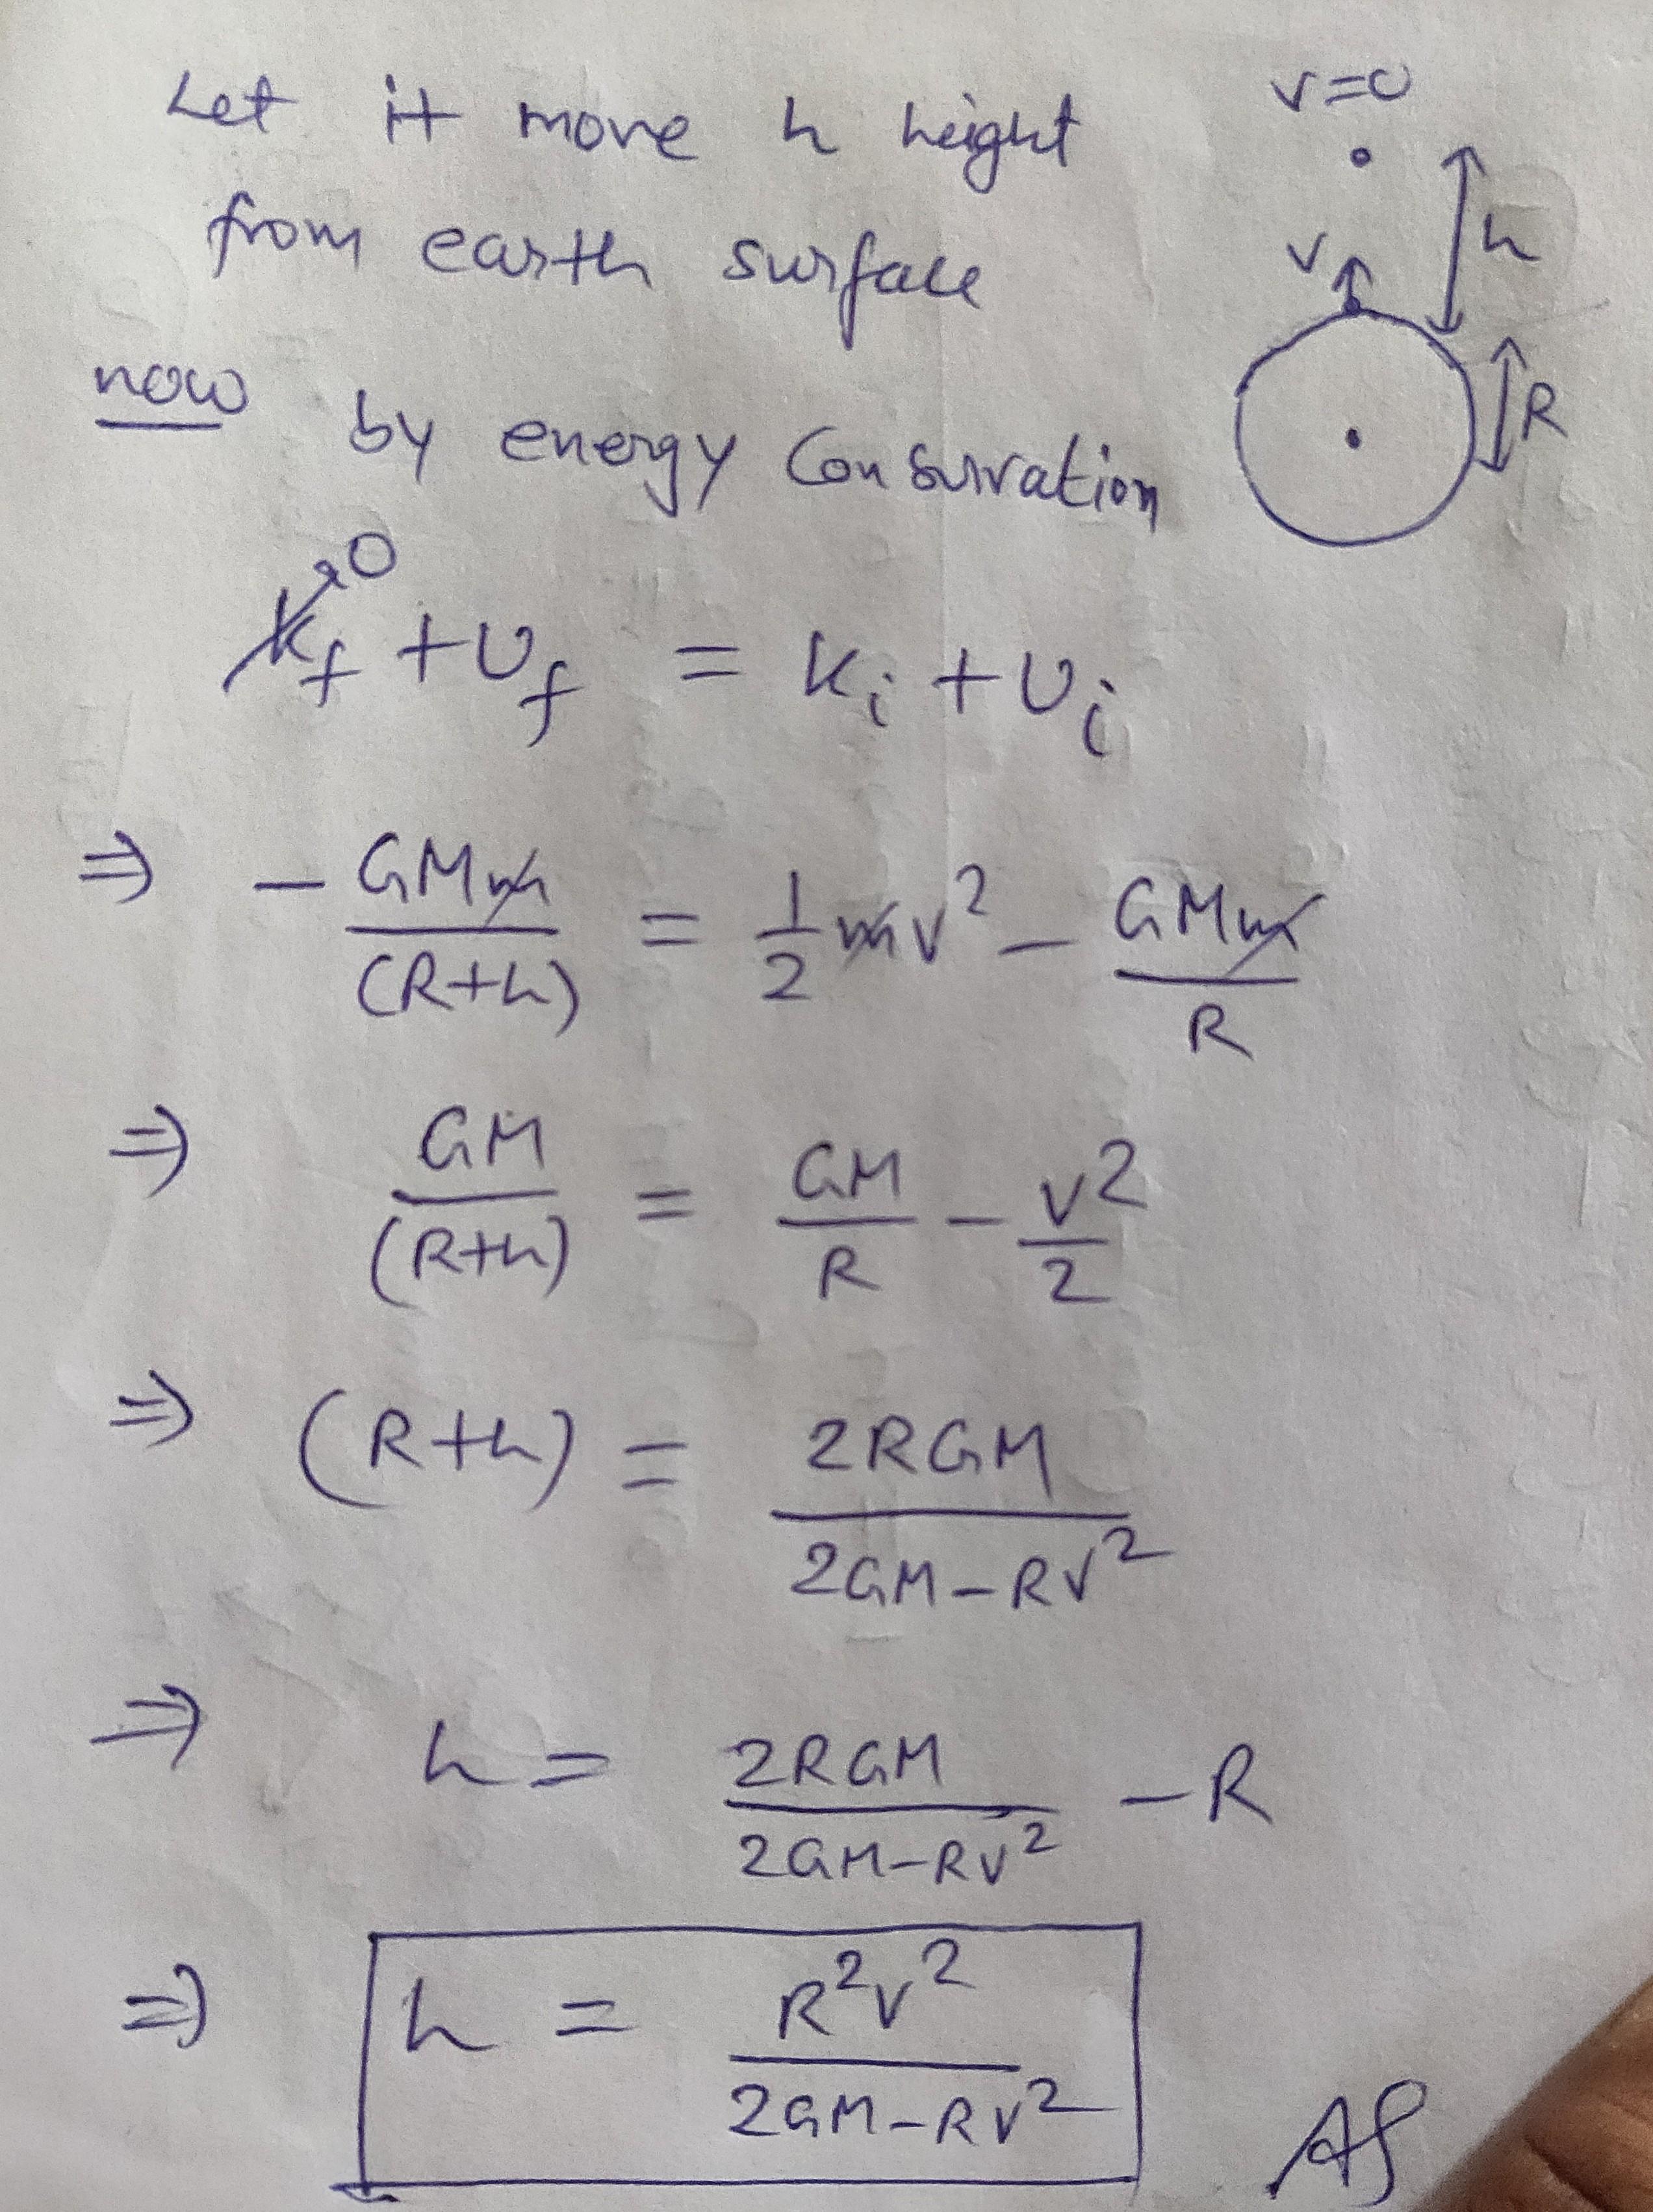 Let it move h height
from earth surface
v=0
h
v
R
now by energy Consurvation
K_f→0 + U_f = K_i + U_i
⇒ - GMm/(R+h) = 1/2 mv² - GMm/R
⇒ GM/(R+h) = GM/R - v²/2
⇒ (R+h) = 2RGM/2GM-Rv²
⇒ h = 2RGM/2GM-Rv² - R
⇒ h = R²v²/2GM-Rv²